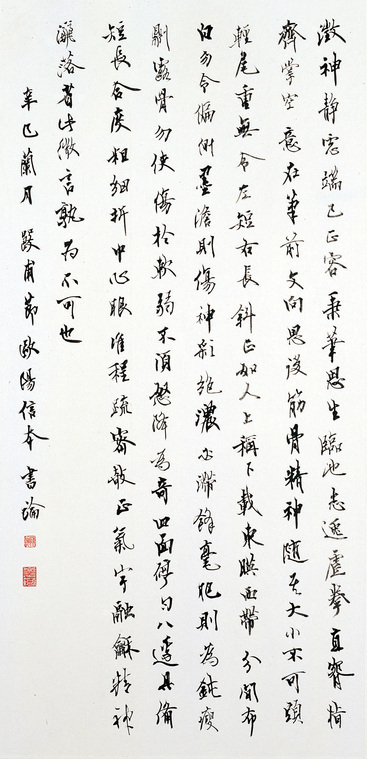 澂神静慮端己正容秉筆思生臨池志逸虚拳直腕指
齊掌空意在筆前文向思後筋骨精神随其大小不可頭
輕尾重無令左短右長斜正如人上稱下載東映西帶分間布
白勿令偏側墨澹則傷神彩絶濃必滞鋒毫肥則為鈍瘦
則露骨勿使傷於軟弱不須怒降為奇四面停勻八邊具備
短長合度粗細折中心眼准程疏密欹正氣宇融龢精神
灑落省此微言孰為不可也
辛巳蘭月 節歐陽信本書論